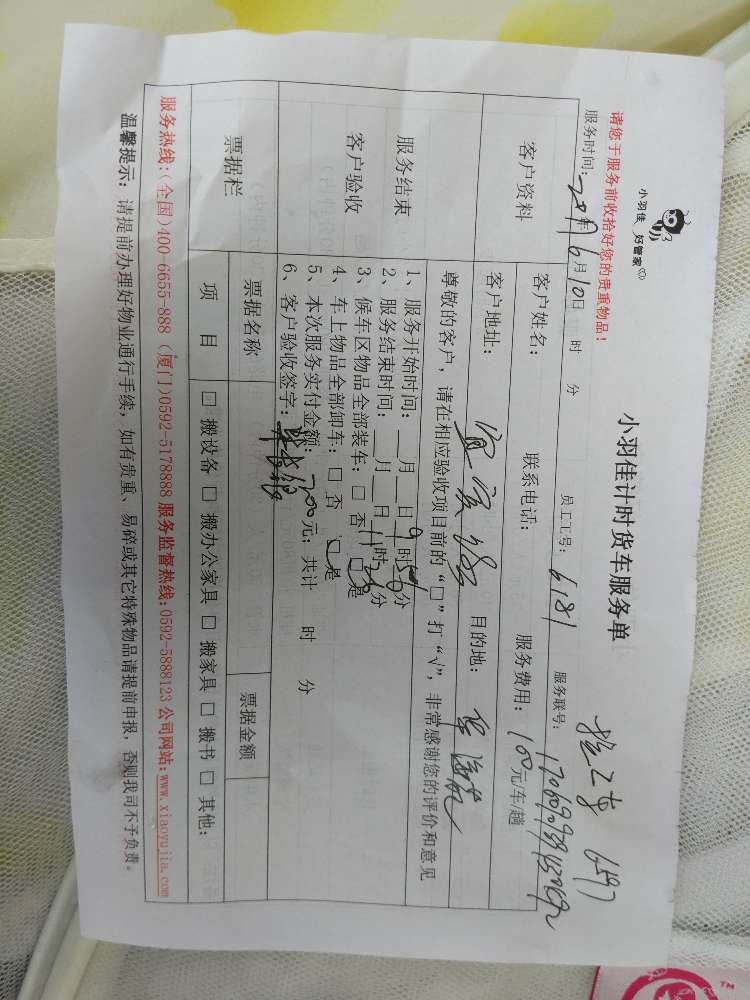 小羽佳 好管家
小羽佳计时货车服务单
请您于服务前收拾好您的贵重物品！
服务时间: 年 6月10日 时 分 员工工号: 6181 服务联号:
客户资料
客户姓名: 联系电话: 服务费用: 100元车/趟
客户地址: 目的地:
尊敬的客户，请在相应验收项目前的“□”打“√”，非常感谢您的评价和意见
服务结束
客户验收
1、服务开始时间: 月 日 9时50分
2、服务结束时间: 月 日 11时 分
3、候车区物品全部装车: □ 否 □ 是
4、车上物品全部卸车: □ 否 □ 是
5、本次服务实付金额: 700元; 共计 时 分
6、客户验收签字:
票据栏
票据名称 票据金额
项 目 □ 搬设备 □ 搬办公家具 □ 搬家具 □ 搬书 □ 其他:
服务热线:(全国)400-6655-888 (厦门)0592-5178888 服务监督热线:0592-5888123 公司网站:www.xiaoyujia.com
温馨提示: 请提前办理好物业通行手续, 如有贵重、易碎或其它特殊物品请提前申报, 否则我司不予负责。
TM